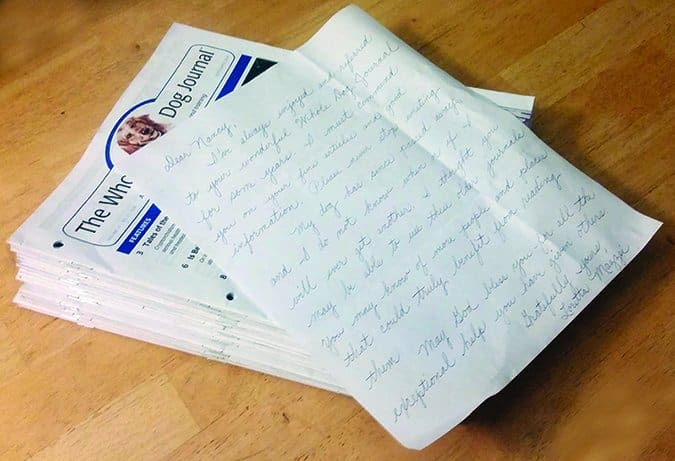 The Who
Dog Journal
FEATURES
3 Tales of the
6 Is Be
8
Dear Nancy,
I've always enjoyed and referred
to your wonderful Whole Dog Journal
for some years. I must commend
you on your fine articles and good
information. Please never stop writing.
My dog has since passed away,
and I do not know when or if I
will ever get another. I thought you
may be able to use these journals.
You may know of more people and places
that could truly benefit from reading
them. May God bless you for all the
exceptional help you have given others
Gratefully yours,
Loretta